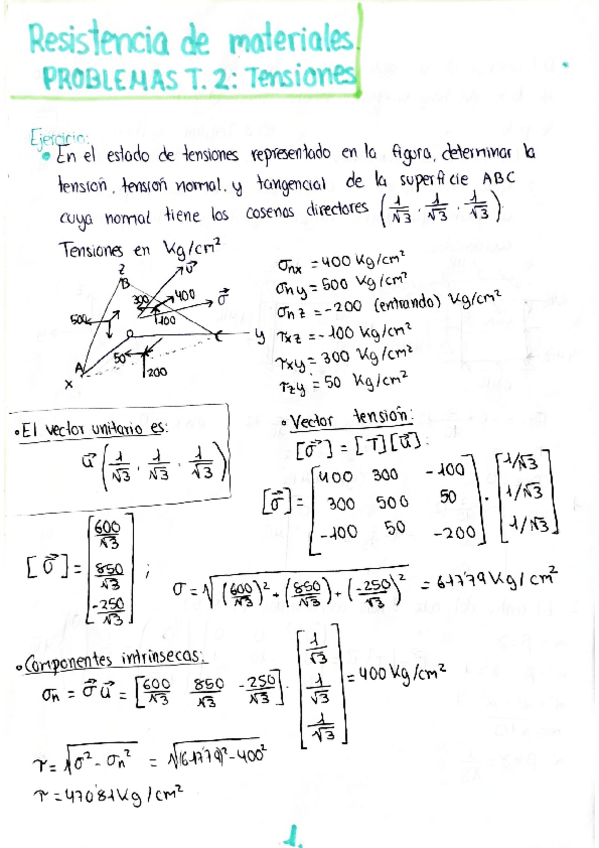 Resistencia de materiales.
PROBLEMAS T. 2: Tensiones
Ejercicio:
• En el estado de tensiones representado en la figura, determinar la
tensión, tensión normal, y tangencial de la superficie ABC
cuya normal tiene los cosenos directores (1/√3, 1/√3, 1/√3).
Tensiones en Kg/cm²
Z
B
u⃗
300
400
σ⃗
500
100
O
C
y
A
50
200
X
σnx = 400 Kg/cm²
σny = 500 Kg/cm²
σnz = -200 (entrando) Kg/cm²
τxz = -100 Kg/cm²
τxy = 300 Kg/cm²
τzy = 50 Kg/cm²
• El vector unitario es:
u⃗ (1/√3, 1/√3, 1/√3)
• Vector tensión:
[σ⃗] = [T][u⃗]:
[σ⃗] = [400 300 -100 · [1/√3
300 500 50 1/√3
-100 50 -200] 1/√3]
[σ⃗] = [600/√3 850/√3 -250/√3] ;
σ = √(600/√3)² + (850/√3) + (-250/√3)² = 617'79 Kg/cm²
• Componentes intrínsecas:
σn = σ⃗ u⃗ = [600/√3 850/√3 -250/√3] · [1/√3 1/√3 1/√3] = 400 Kg/cm²
τ = √σ² - σn² = √(617'79)² - 400²
τ = 470'81 Kg/cm²
1.